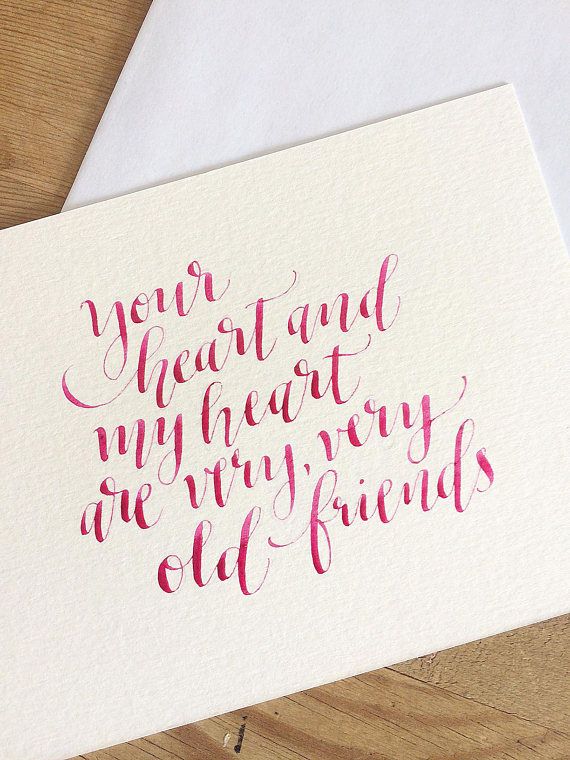 your
heart and
my heart
are very, very
old friends